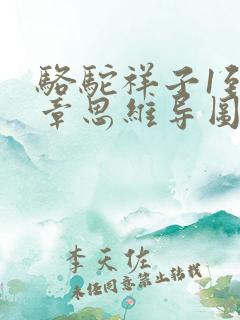 骆驼祥子1至
章思维导图
李天佐
未经同意禁止转载